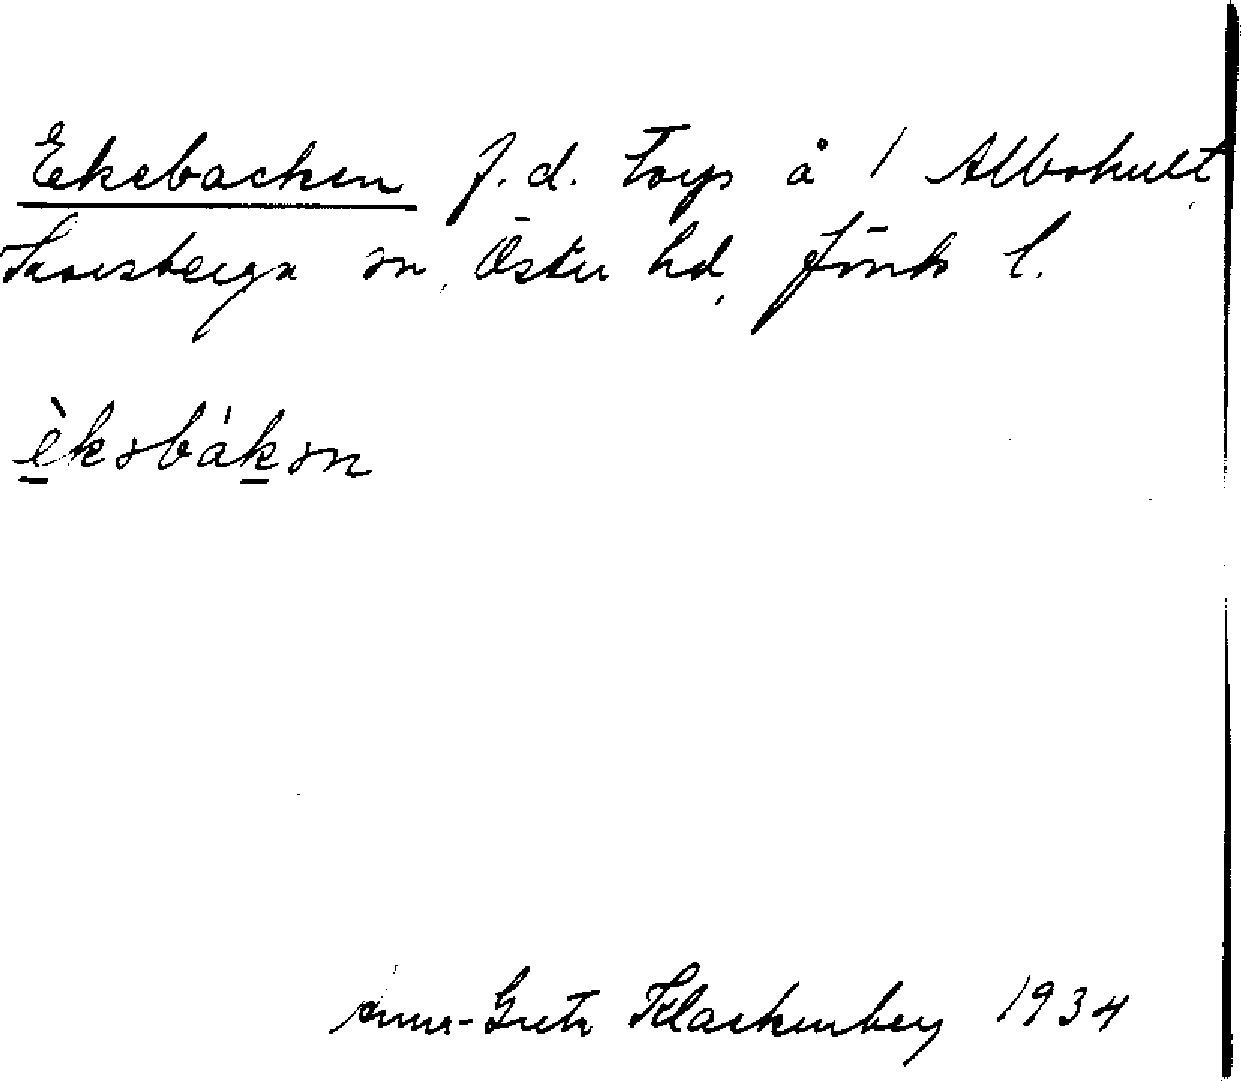 Ekebacken f.d. torp å 1 Albohult
Karsberga sn, Östra hd, Jönk l.
èkəbákən
Anna-Greta Klackenberg 1934